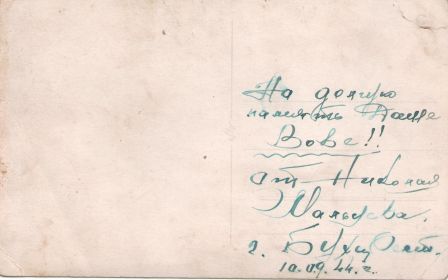 На долгую
память Паше
Вове!!
от Николая

г. Бухарест.
10.09.44.г.